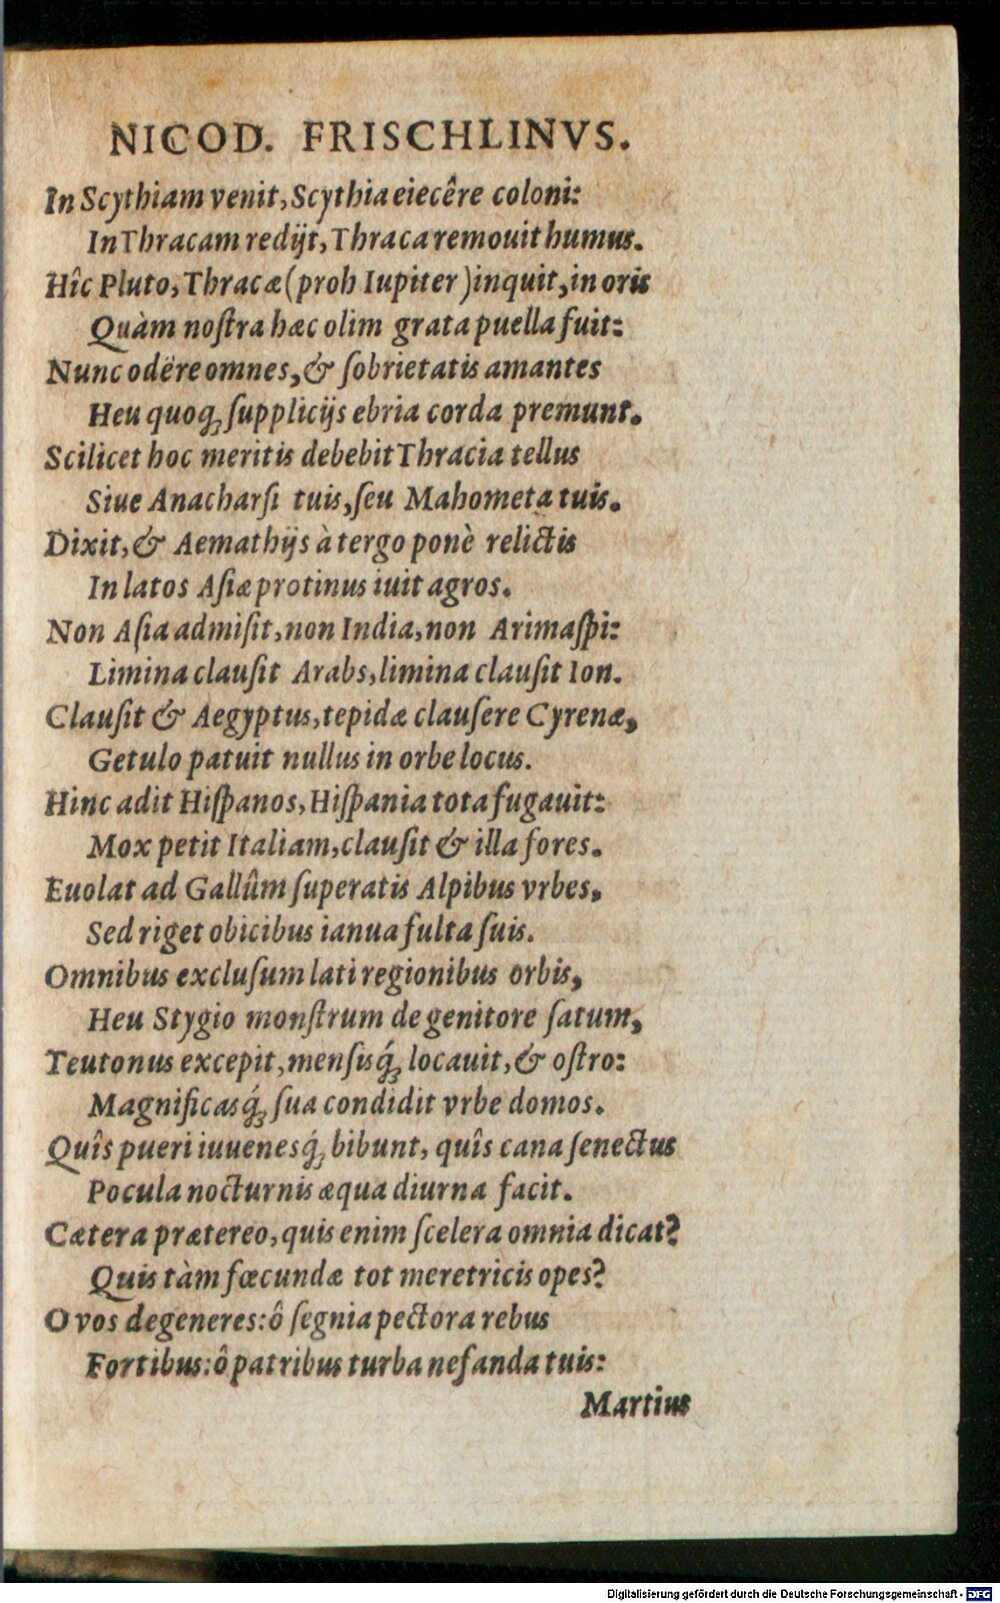 NICOD. FRISCHLINVS.
In Scythiam venit, Scythia eiecêre coloni:
In Thracam redijt, Thraca remouit humus.
Hîc Pluto, Thracæ (proh Iupiter) inquit, in oris
Quàm noſtra hæc olim grata puella fuit:
Nunc odëre omnes, & ſobrietatis amantes
Heu quoq; ſupplicijs ebria corda premunt.
Scilicet hoc meritis debebit Thracia tellus
Siue Anacharſi tuis, ſeu Mahometa tuis.
Dixit, & Aemathijs à tergo ponè relictis
In latos Aſiæ protinus iuit agros.
Non Aſia admiſit, non India, non Arimaſpi:
Limina clauſit Arabs, limina clauſit Ion.
Clauſit & Aegyptus, tepidæ clauſere Cyrenæ,
Getulo patuit nullus in orbe locus.
Hinc adit Hiſpanos, Hiſpania tota fugauit:
Mox petit Italiam, clauſit & illa fores.
Euolat ad Gallûm ſuperatis Alpibus vrbes,
Sed riget obicibus ianua fulta ſuis.
Omnibus excluſum lati regionibus orbis,
Heu Stygio monſtrum de genitore ſatum,
Teutonus excepit, menſisq́; locauit, & oſtro:
Magnificasq́; ſua condidit vrbe domos.
Quîs pueri iuuenesq́; bibunt, quîs cana ſenectus
Pocula nocturnis æqua diurna facit.
Cætera prætereo, quis enim ſcelera omnia dicat?
Quis tàm fœcundæ tot meretricis opes?
O vos degeneres: ô ſegnia pectora rebus
Fortibus: ô patribus turba nefanda tuis:
Martius
Digitalisierung gefördert durch die Deutsche Forschungsgemeinschaft - DFG